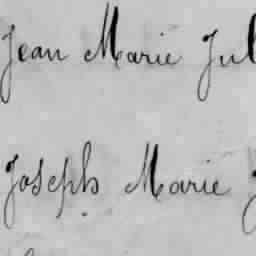 Jean Marie Jul
Joseph Marie J